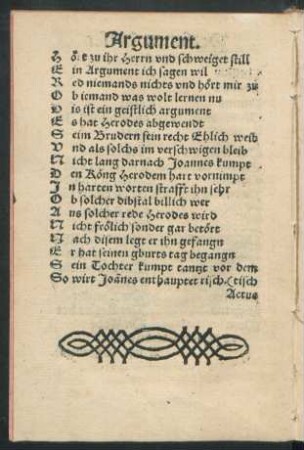 Argument.
Hört zu ihr Herrn vnd schweiget still
Ein Argument ich sagen wil
Red niemands nichts vnd hört mir zů
Ob iemand was wolt lernen nu
Dis ist ein geistlich argument
Es hat Herodes abgewendt
Seim Brudern sein recht Ehlich weib
Vnd als solchs im verschwigen bleib
Nicht lang darnach Joannes kumpt
Den Köng Herodem hart vornimpt
In harten worten strafft ihn sehr
Ob solcher dibstal billich wer
Aus solcher rede Herodes wird
Nicht frölich sonder gar betört
Nach disem legt er ihn gefangn
Er hat seinen gburts tag begangn
Sein Tochter kumpt tantzt vor dem
So wirt Joānes enthauptet risch. (tisch
Actus